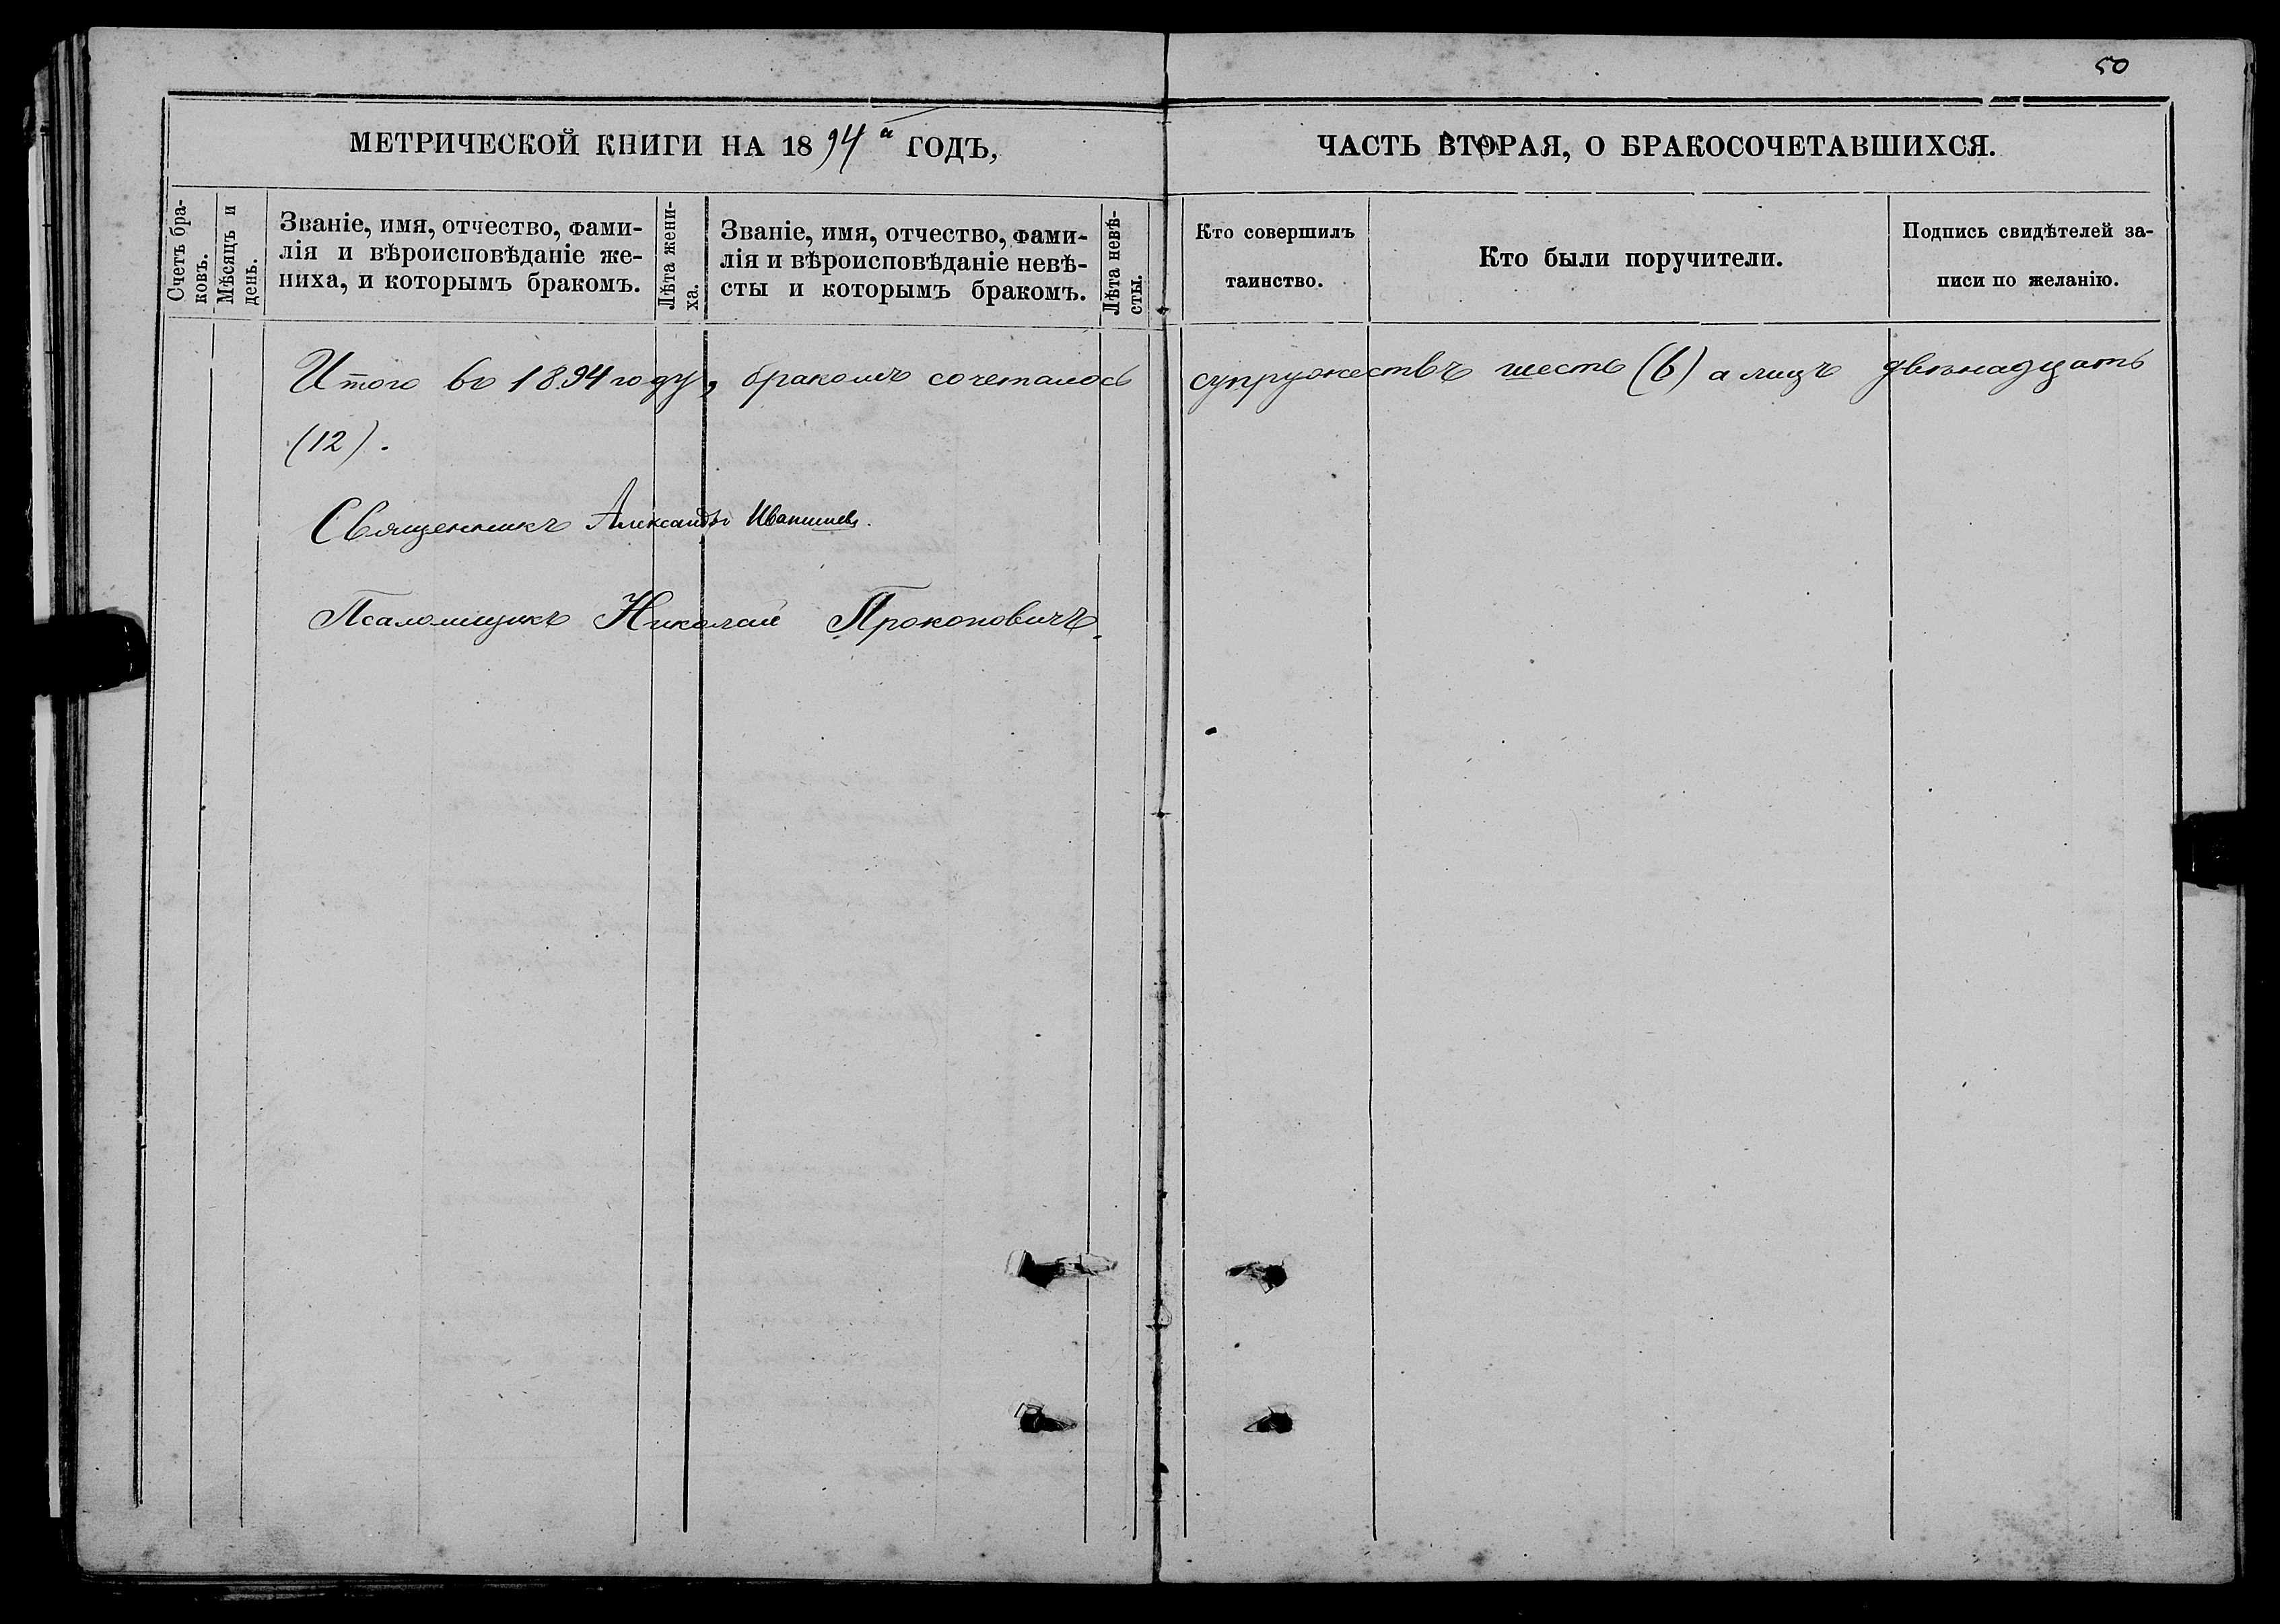 50
МЕТРИЧЕСКОЙ КНИГИ НА 1894й ГОДЪ,
ЧАСТЬ ВТОРАЯ, О БРАКОСОЧЕТАВШИХСЯ.
Счетъ бра-
ковъ.
Мѣсяцъ и
день.
Званіе, имя, отчество, фами-
лія и вѣроисповѣданіе же-
ниха, и которымъ бракомъ.
Лѣта жени-
ха.
Званіе, имя, отчество, фами-
лія и вѣроисповѣданіе невѣ-
сты и которымъ бракомъ.
Лѣта невѣ-
сты.
Кто совершилъ
таинство.
Кто были поручители.
Подпись свидѣтелей за-
писи по желанію.
Итого въ 1894 году, бракомъ сочеталось супружествъ шесть (6) а лицъ двѣнадцать
(12).
Священникъ Александръ
Псаломщикъ Николай Прокоповичъ.